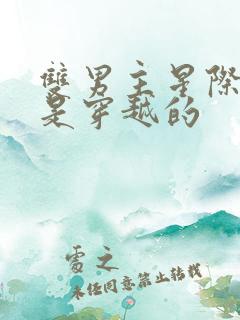 雙男主星際
是穿越的
雲之
未经同意禁止转载